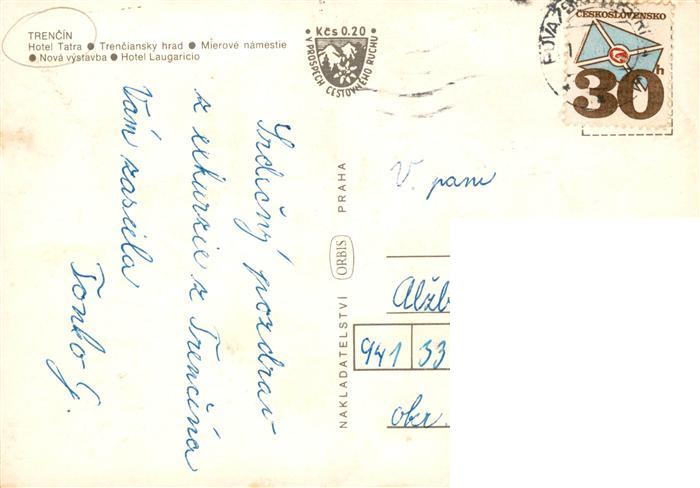 TRENČÍN
Hotel Tatra ● Trenčiansky hrad ● Mierové námestie
● Nová výstavba ● Hotel Laugaricio
Kčs 0.20
V PROSPĚCH CESTOVNÉHO RUCHU
ČESKOSLOVENSKO
30h
Srdečný pozdrav
z exkurzie z Trenčína
Vám zasiela
Tonko G.
NAKLADATELSTVÍ ORBIS PRAHA
V. pani
Alžb
941 33
okr.